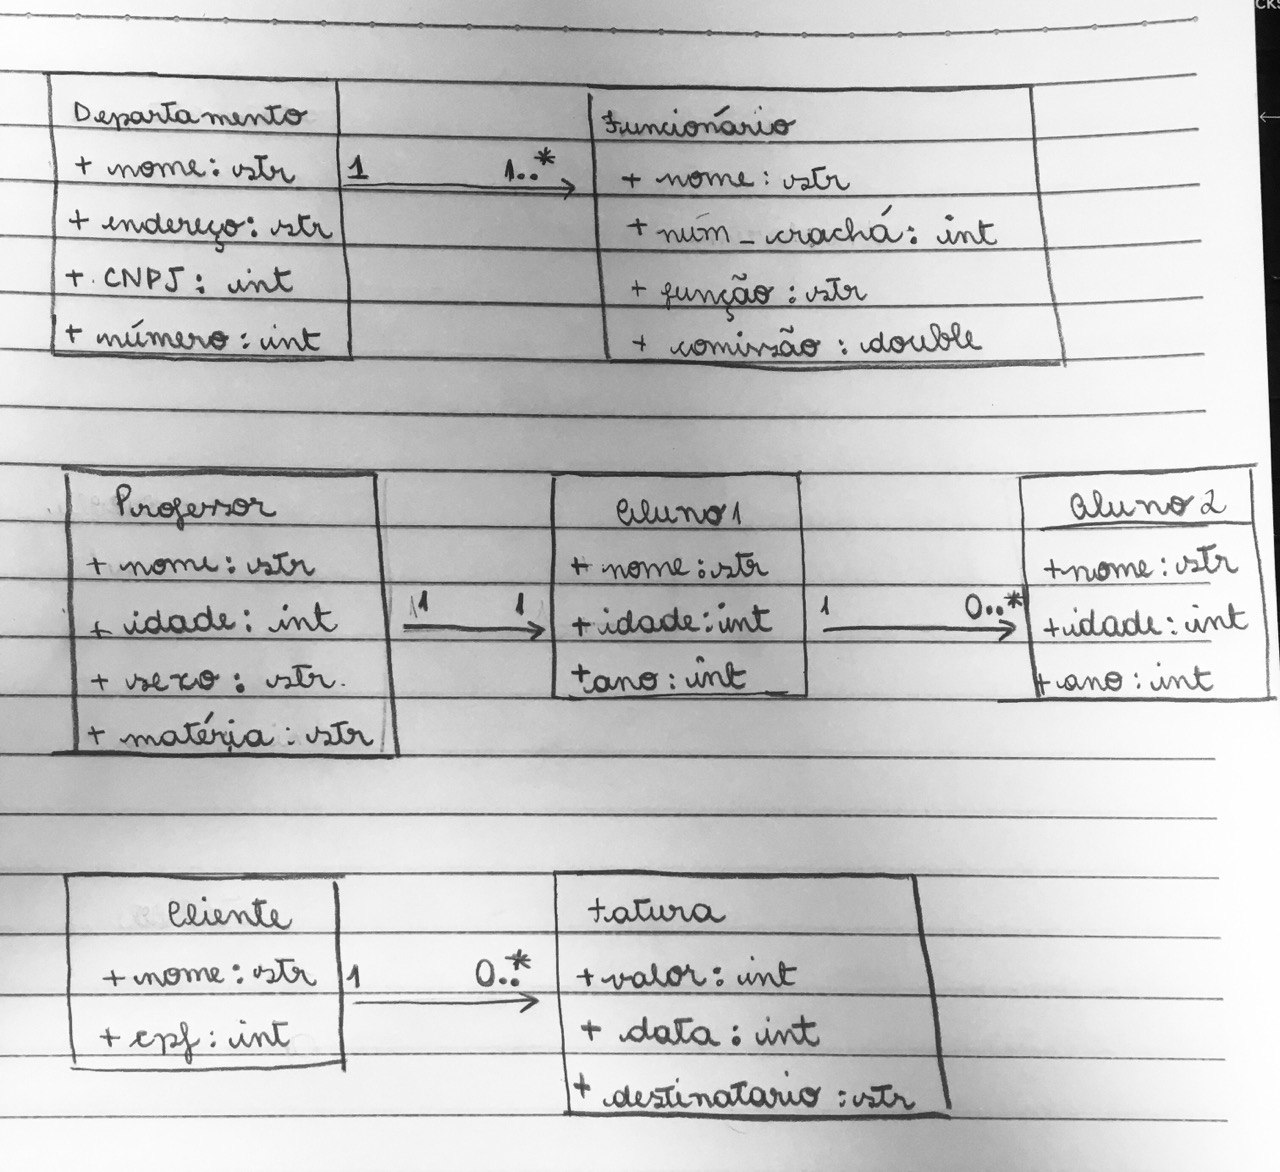 Departamento
+ nome: str
+ endereço: str
+ CNPJ: int
+ número: int
1 1..*
Funcionário
+ nome: str
+ núm_crachá: int
+ função: str
+ comissão: double
Professor
+ nome: str
+ idade: int
+ sexo: str.
+ matéria: str
1 1
Aluno 1
+ nome: str
+ idade: int
+ ano: int
1 0..*
Aluno 2
+ nome: str
+ idade: int
+ ano: int
Cliente
+ nome: str
+ cpf: int
1 0..*
Fatura
+ valor: int
+ data: int
+ destinatario: str